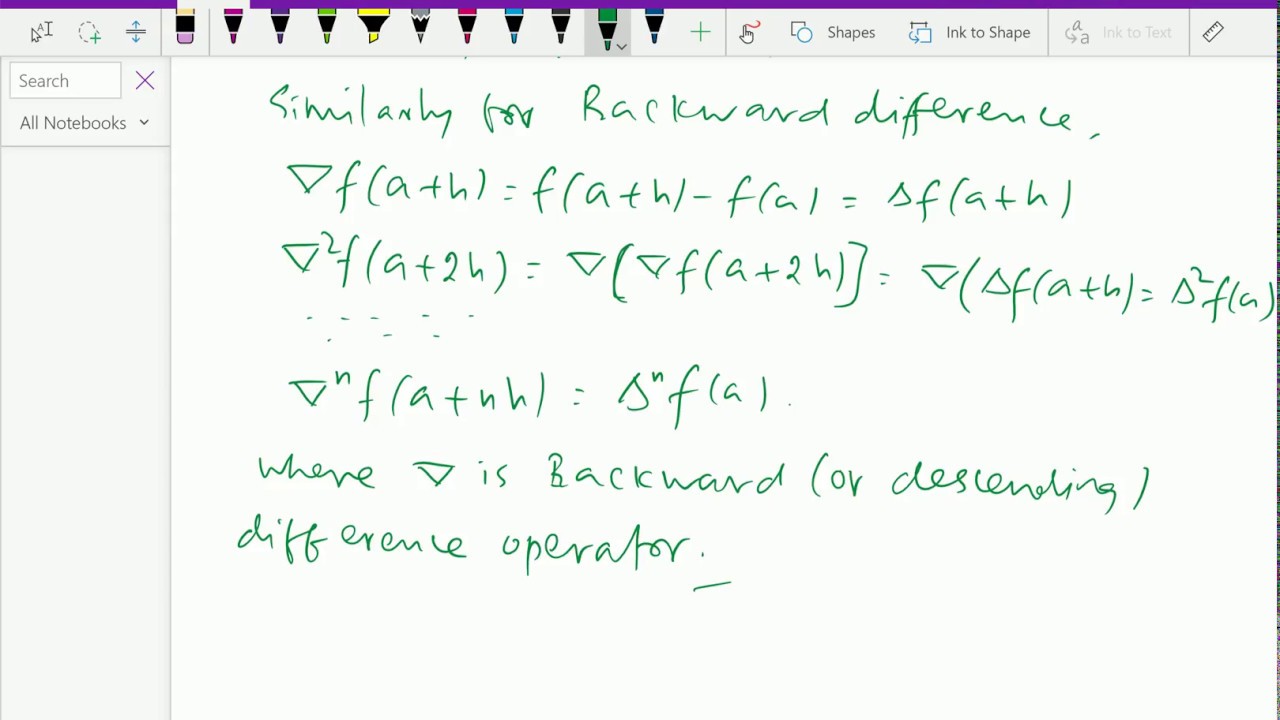 Ink to Shape
Shapes
Ink to Text
Search
All Notebooks
Similarly for Backward difference,
∇f(a+h) = f(a+h) - f(a) = Δf(a+h)
∇²f(a+2h) = ∇[∇f(a+2h)] = ∇(Δf(a+h) = Δ²f(a)
∇ⁿf(a+nh) = Δⁿf(a).
where ∇ is Backward (or descending)
difference operator.